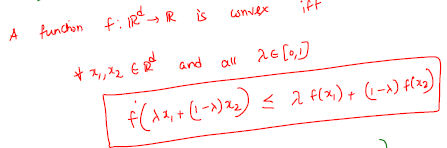 A function f: ℝᵈ → ℝ is convex iff
∀ x₁, x₂ ∈ ℝᵈ and all λ ∈ [0,1]
f(λx₁ + (1-λ)x₂) ≤ λ f(x₁) + (1-λ) f(x₂)